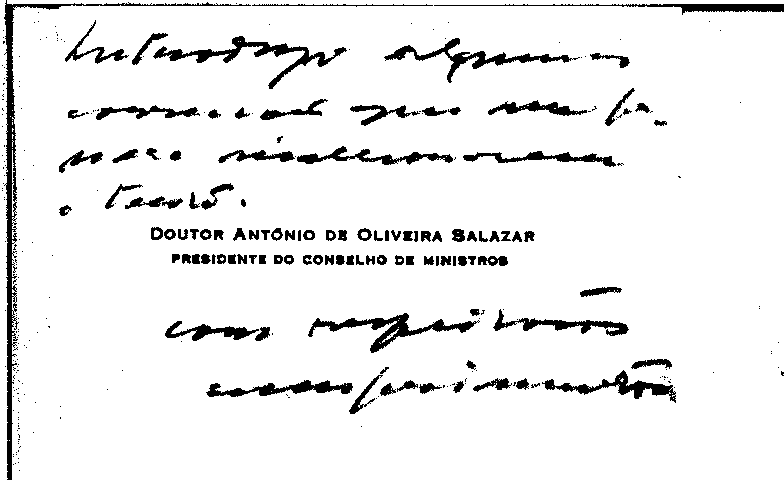 Introduzo algumas
correcções que me pa-
recem
o texto.
DOUTOR ANTÓNIO DE OLIVEIRA SALAZAR
PRESIDENTE DO CONSELHO DE MINISTROS
com respeitosos
cumprimentos